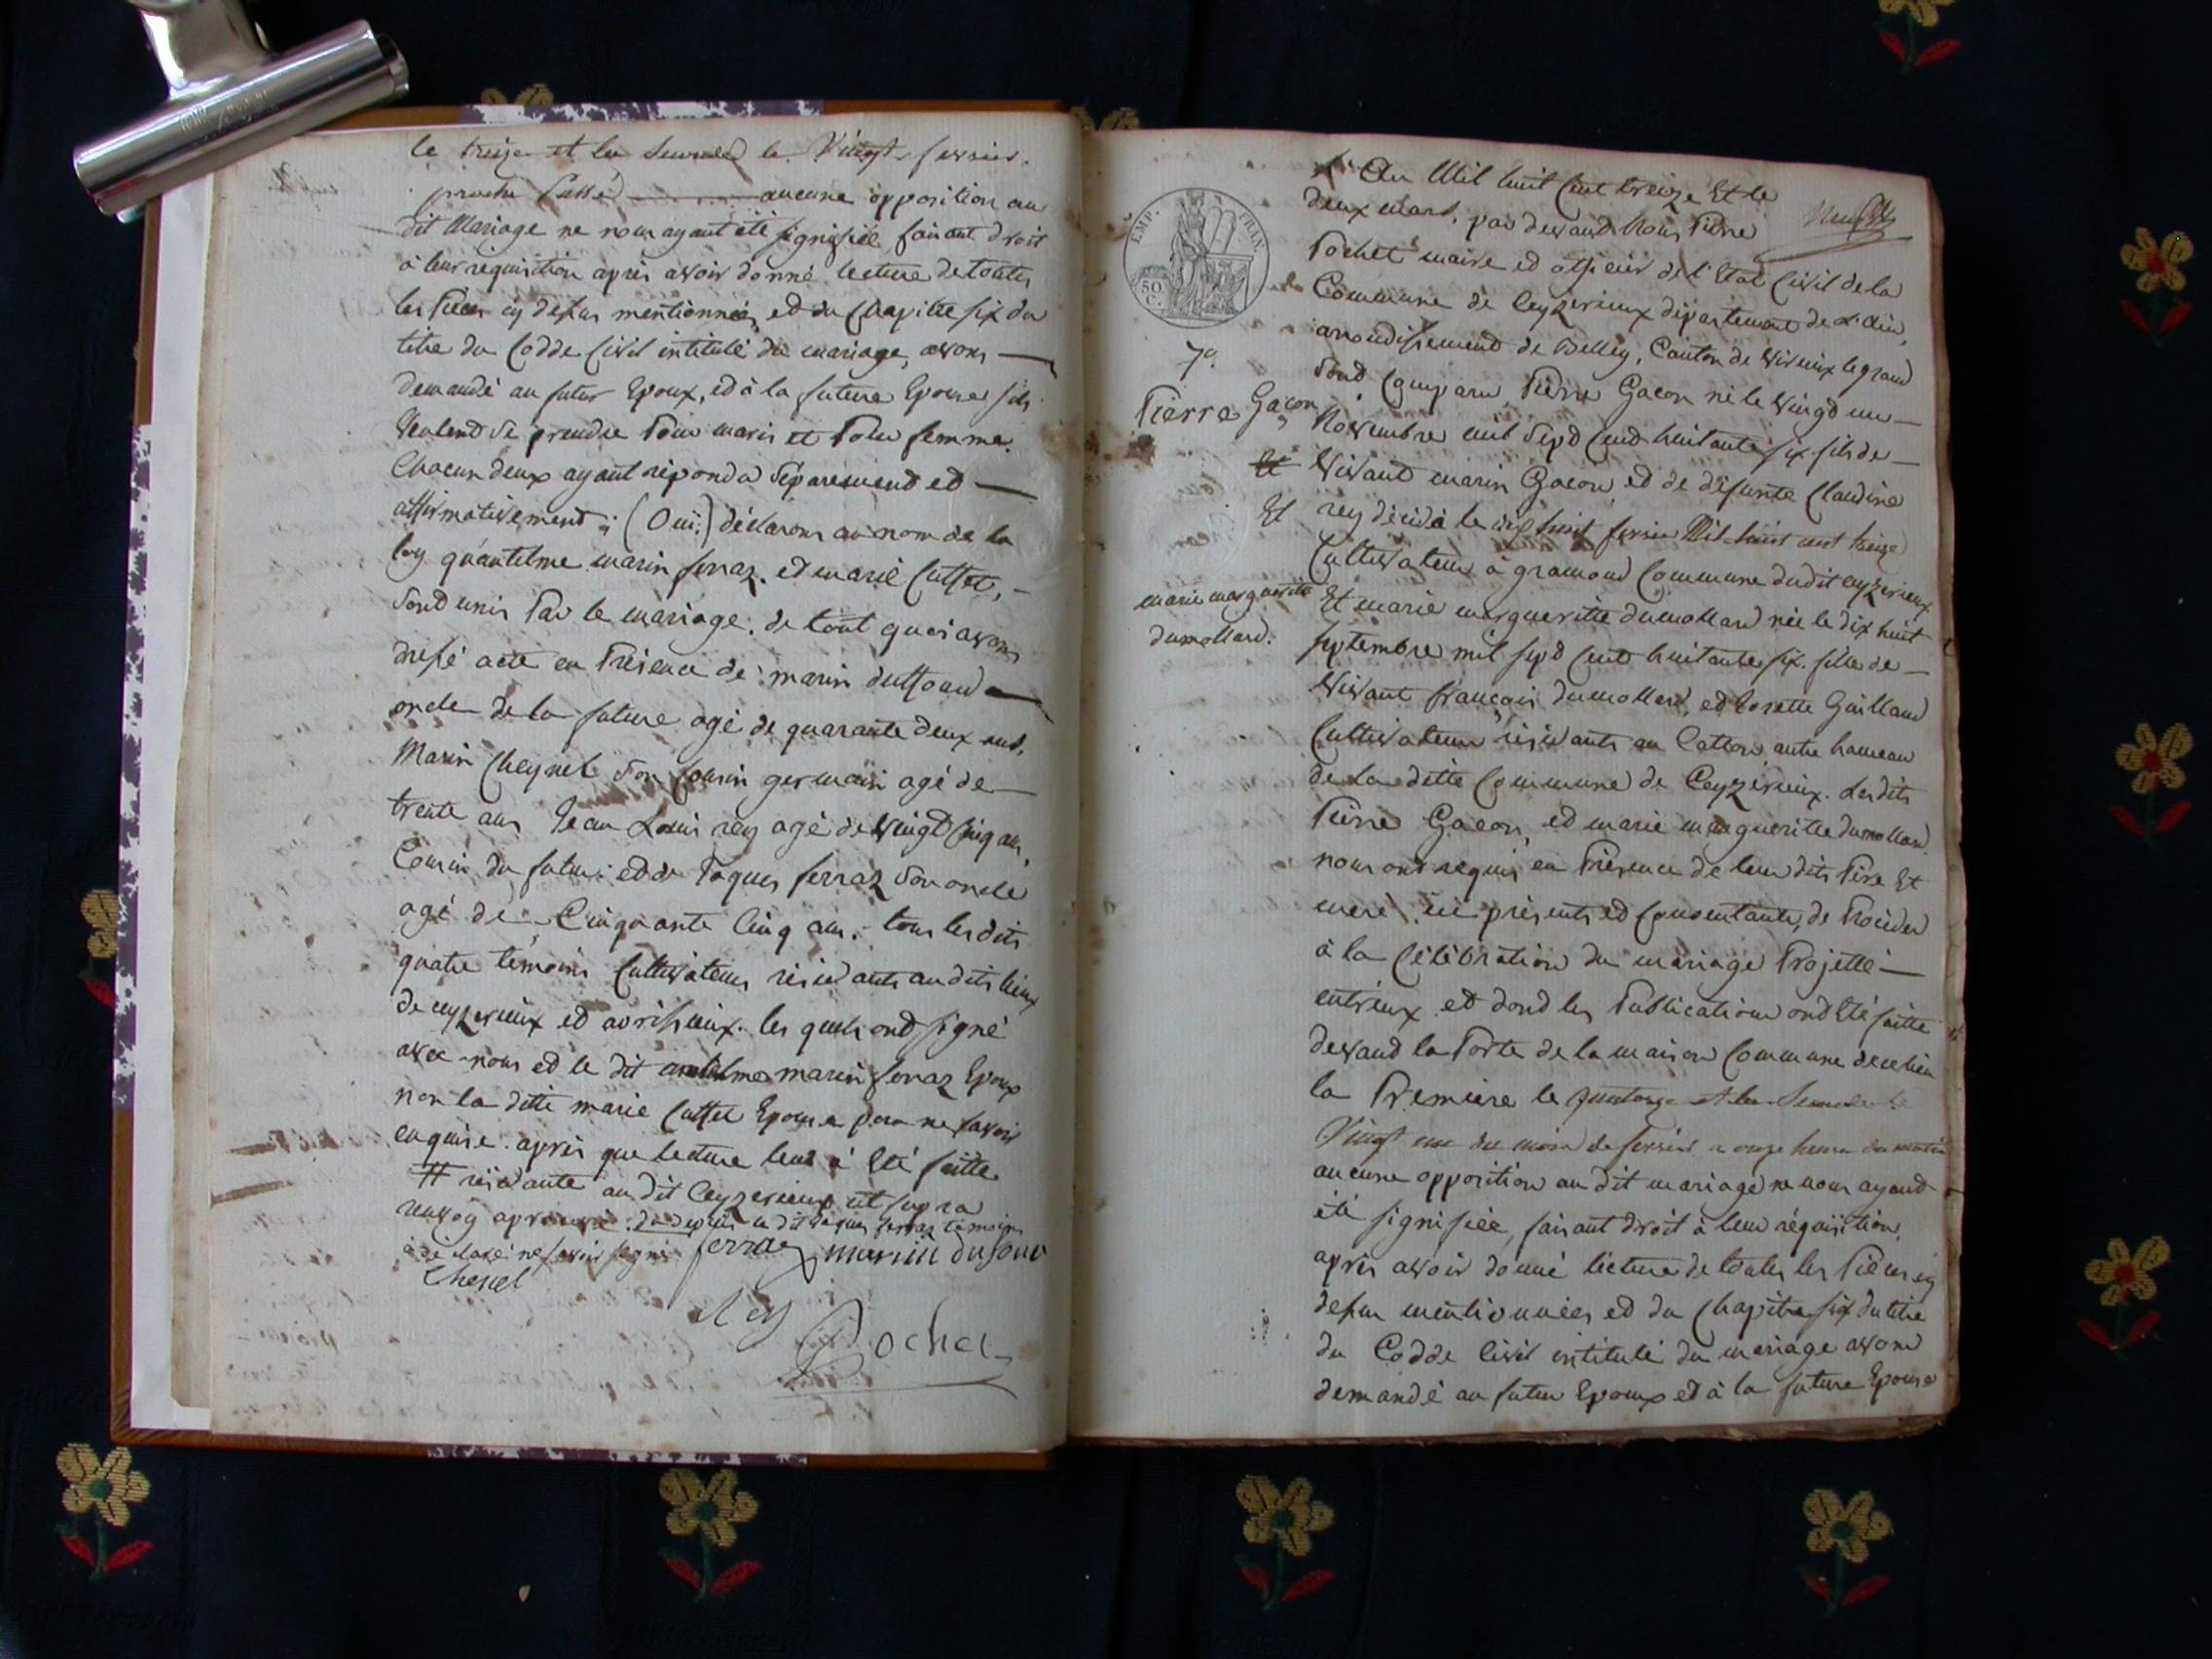 le treize et la seconde le Vingt fevrier.
proche passé aucune opposition au
dit Mariage ne nous ayant été signifiée, faisant droit
à leur requisition après avoir donné lecture de toutes
les Pieces cy dessus mentionnées, et du Chapitre six du
titre du Codde Civil intitulé du mariage, avons
demandé au futur Epoux, ed à la future Epouse s'ils
veulent se prendre Pour maris et Pour femme.
Chacun deux ayant repondu séparément ed
affirmativement; (Oui;) déclarons au nom de la
loy qu'antelme marin ferraz. ed marie Cuttet,
sond unis Par le mariage. de tout quoi avons
dressé acte en Présence de marin duffourd
oncle de la future agé de quarante deux ans,
Marin Cheynel son Cousin germain agé de
trente ans Jean Louis rey agé de vingt Cinq ans,
Cousin du futur. ed de Jaques ferraz son oncle
agé de Cinquante Cinq ans. tous les dits
quatre témoins Cultivateurs résidants au dits lieux
de ceyzerieux ed avrissieux. les quels ond signé
avec nous ed le dit antelme marin ferraz Epoux
non la ditte marie Cuttet Epouse pour ne savoir
enquise. après que lecture leur à Eté faitte
# résidante au dit Ceyzerieux ut supra
renvoy aprouvé. le dit Jaques ferraz témoin
à déclaré ne savoir signé ferraz marin dufour
Chenel
Rey Pochet
L'An Mil huit Cent treize Et le
deux mars, par devand Nous Pierre
Pochet maire ed officier de l'Etat Civil de la
Commune de Ceyzerieux département de L'ain,
arrondissement de Belley, Canton de virieux le grand
sond Comparu, Pierre Gacon né le vingd un
Novembre mil sepd Cend huitante six. fils de
vivant marin Gacon, ed de défunte Claudine
rey décédé le dix huit fevrier Mil huit cent treize
Cultivateur à gramond Commune dudit ceyzerieux
Et marie margueritte dumollard née le dix huit
septembre mil sepd Cend huitante six. fille de
vivant françois dumollard, ed Josette Gaillard
Cultivateurs résidants au Catton autre hameau
de la ditte Commune de Ceyzerieux. Les dits
Pierre Gacon, ed marie margueritte dumollard.
nous ont requis en Présence de leur dits Père Et
mere ici présents ed Consentants, de Proceder
à la Célébration du mariage Projetté
entréux ed dond les Publications ond Eté faitte
devand la Porte de la maison Commune de ce lieu
la Premiere le quatorze et la seconde le
Vingt un du mois de fevrier a onze heures du matin
aucune opposition au dit mariage ne nous ayand
été signifiée, faisant droit à leur réquisition,
après avoir donné lécture de toutes les Pièces cy
dessus mentionnées ed du Chapitre six du titre
du Codde Civil intitulé du mariage avons
demandé au futur Epoux ed à la future Epouse
EMP. FRAN.
50
C.
7e.
Pierre Gacon
Et
Et
marie margueritte
dumollard.